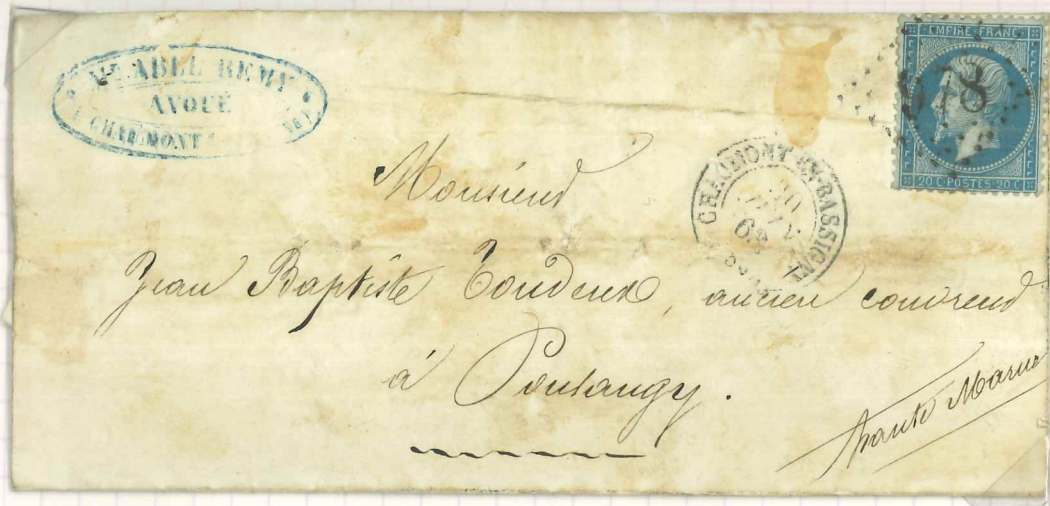 ABEL REMY
AVOUÉ
CHAUMONT
EMPIRE FRANC
978
20 C POSTES 20 C
CHAUMONT-EN-BASSIGNY
20
63
Monsieur
Jean Baptiste Toudeux, ancien couvreur
à Poulangy.
haute Marne